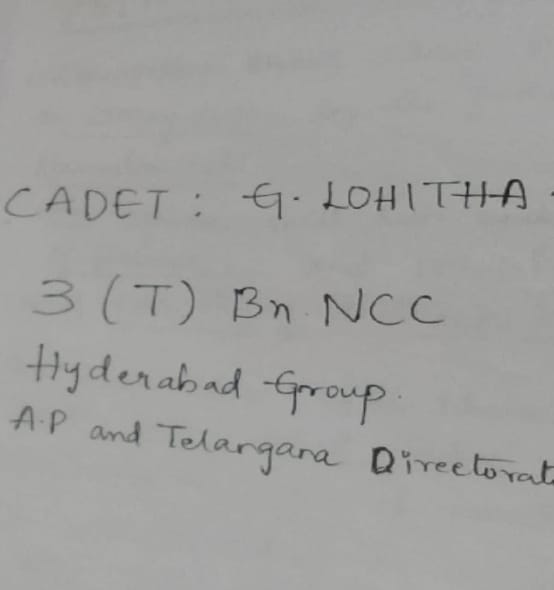 CADET : G. LOHITHA
3 (T) Bn NCC
Hyderabad Group.
A.P and Telangana Directorat